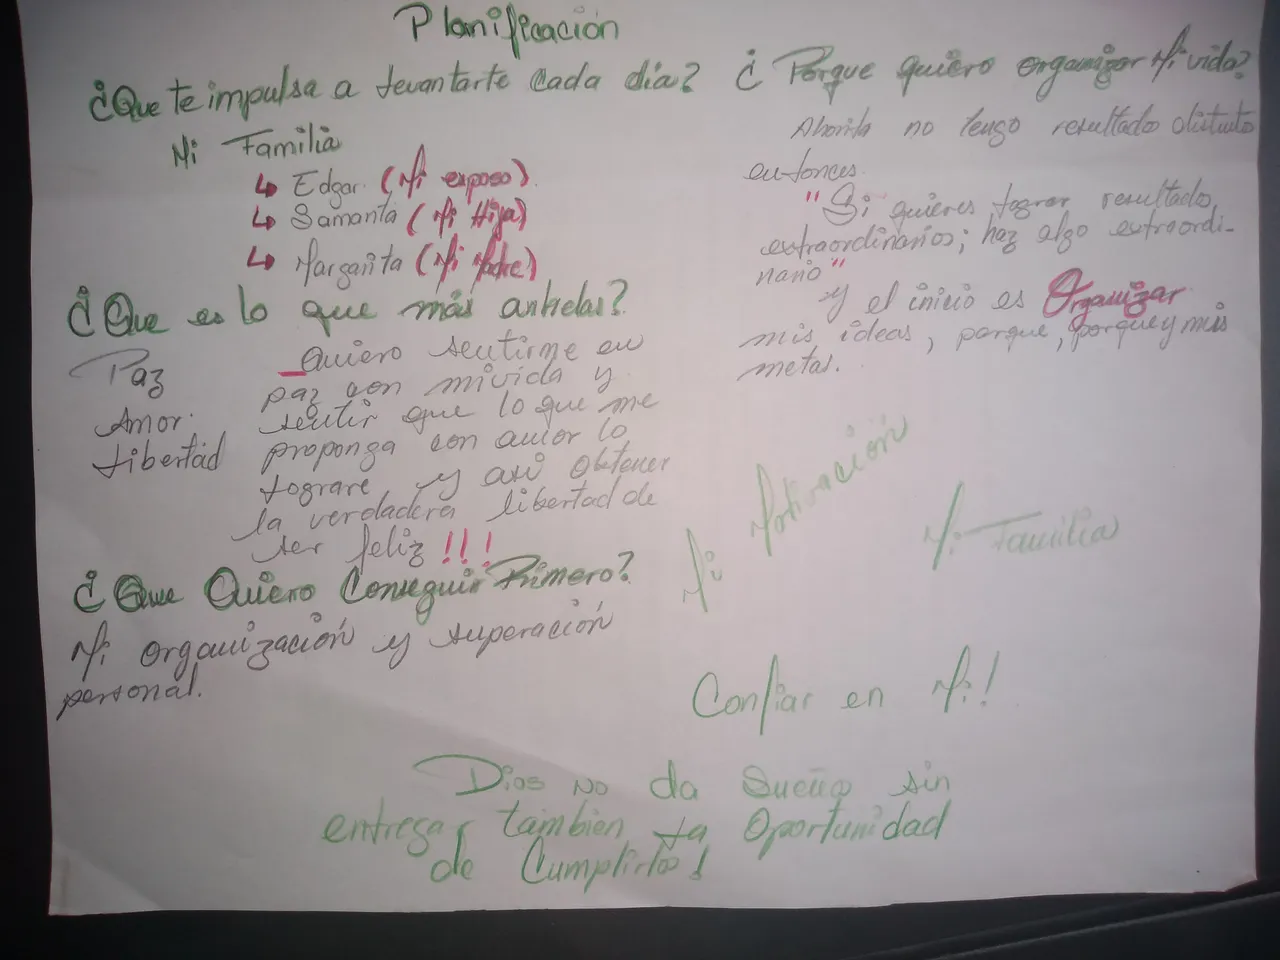 Planificación
¿Que te impulsa a levantarte cada día?
Mi Familia
↳ Edgar. (Mi esposo).
↳ Samanta (Mi Hija)
↳ Margarita (Mi Madre)
¿Que es lo que más anhelas?
Paz
Amor.
Libertad
_Quiero sentirme en
paz con mi vida y
sentir que lo que me
proponga con amor lo
lograre y asi obtener
la verdadera libertad de
ser feliz!!!
¿Que Quiero Conseguir Primero?
Mi organización y superación
personal.
¿Porque quiero organizar Mi vida?
Ahorita no tengo resultado distinto
entonces.
"Si quieres lograr resultado
extraordinarios; haz algo extraordi-
nario"
y el inicio es Organizar
mis ideas, porque, porque y mis
metas.
Mi Motivación
Mi Familia
Confiar en Mi!
Dios no da Sueño sin
entregar tambien la Oportunidad
de Cumplirlos!